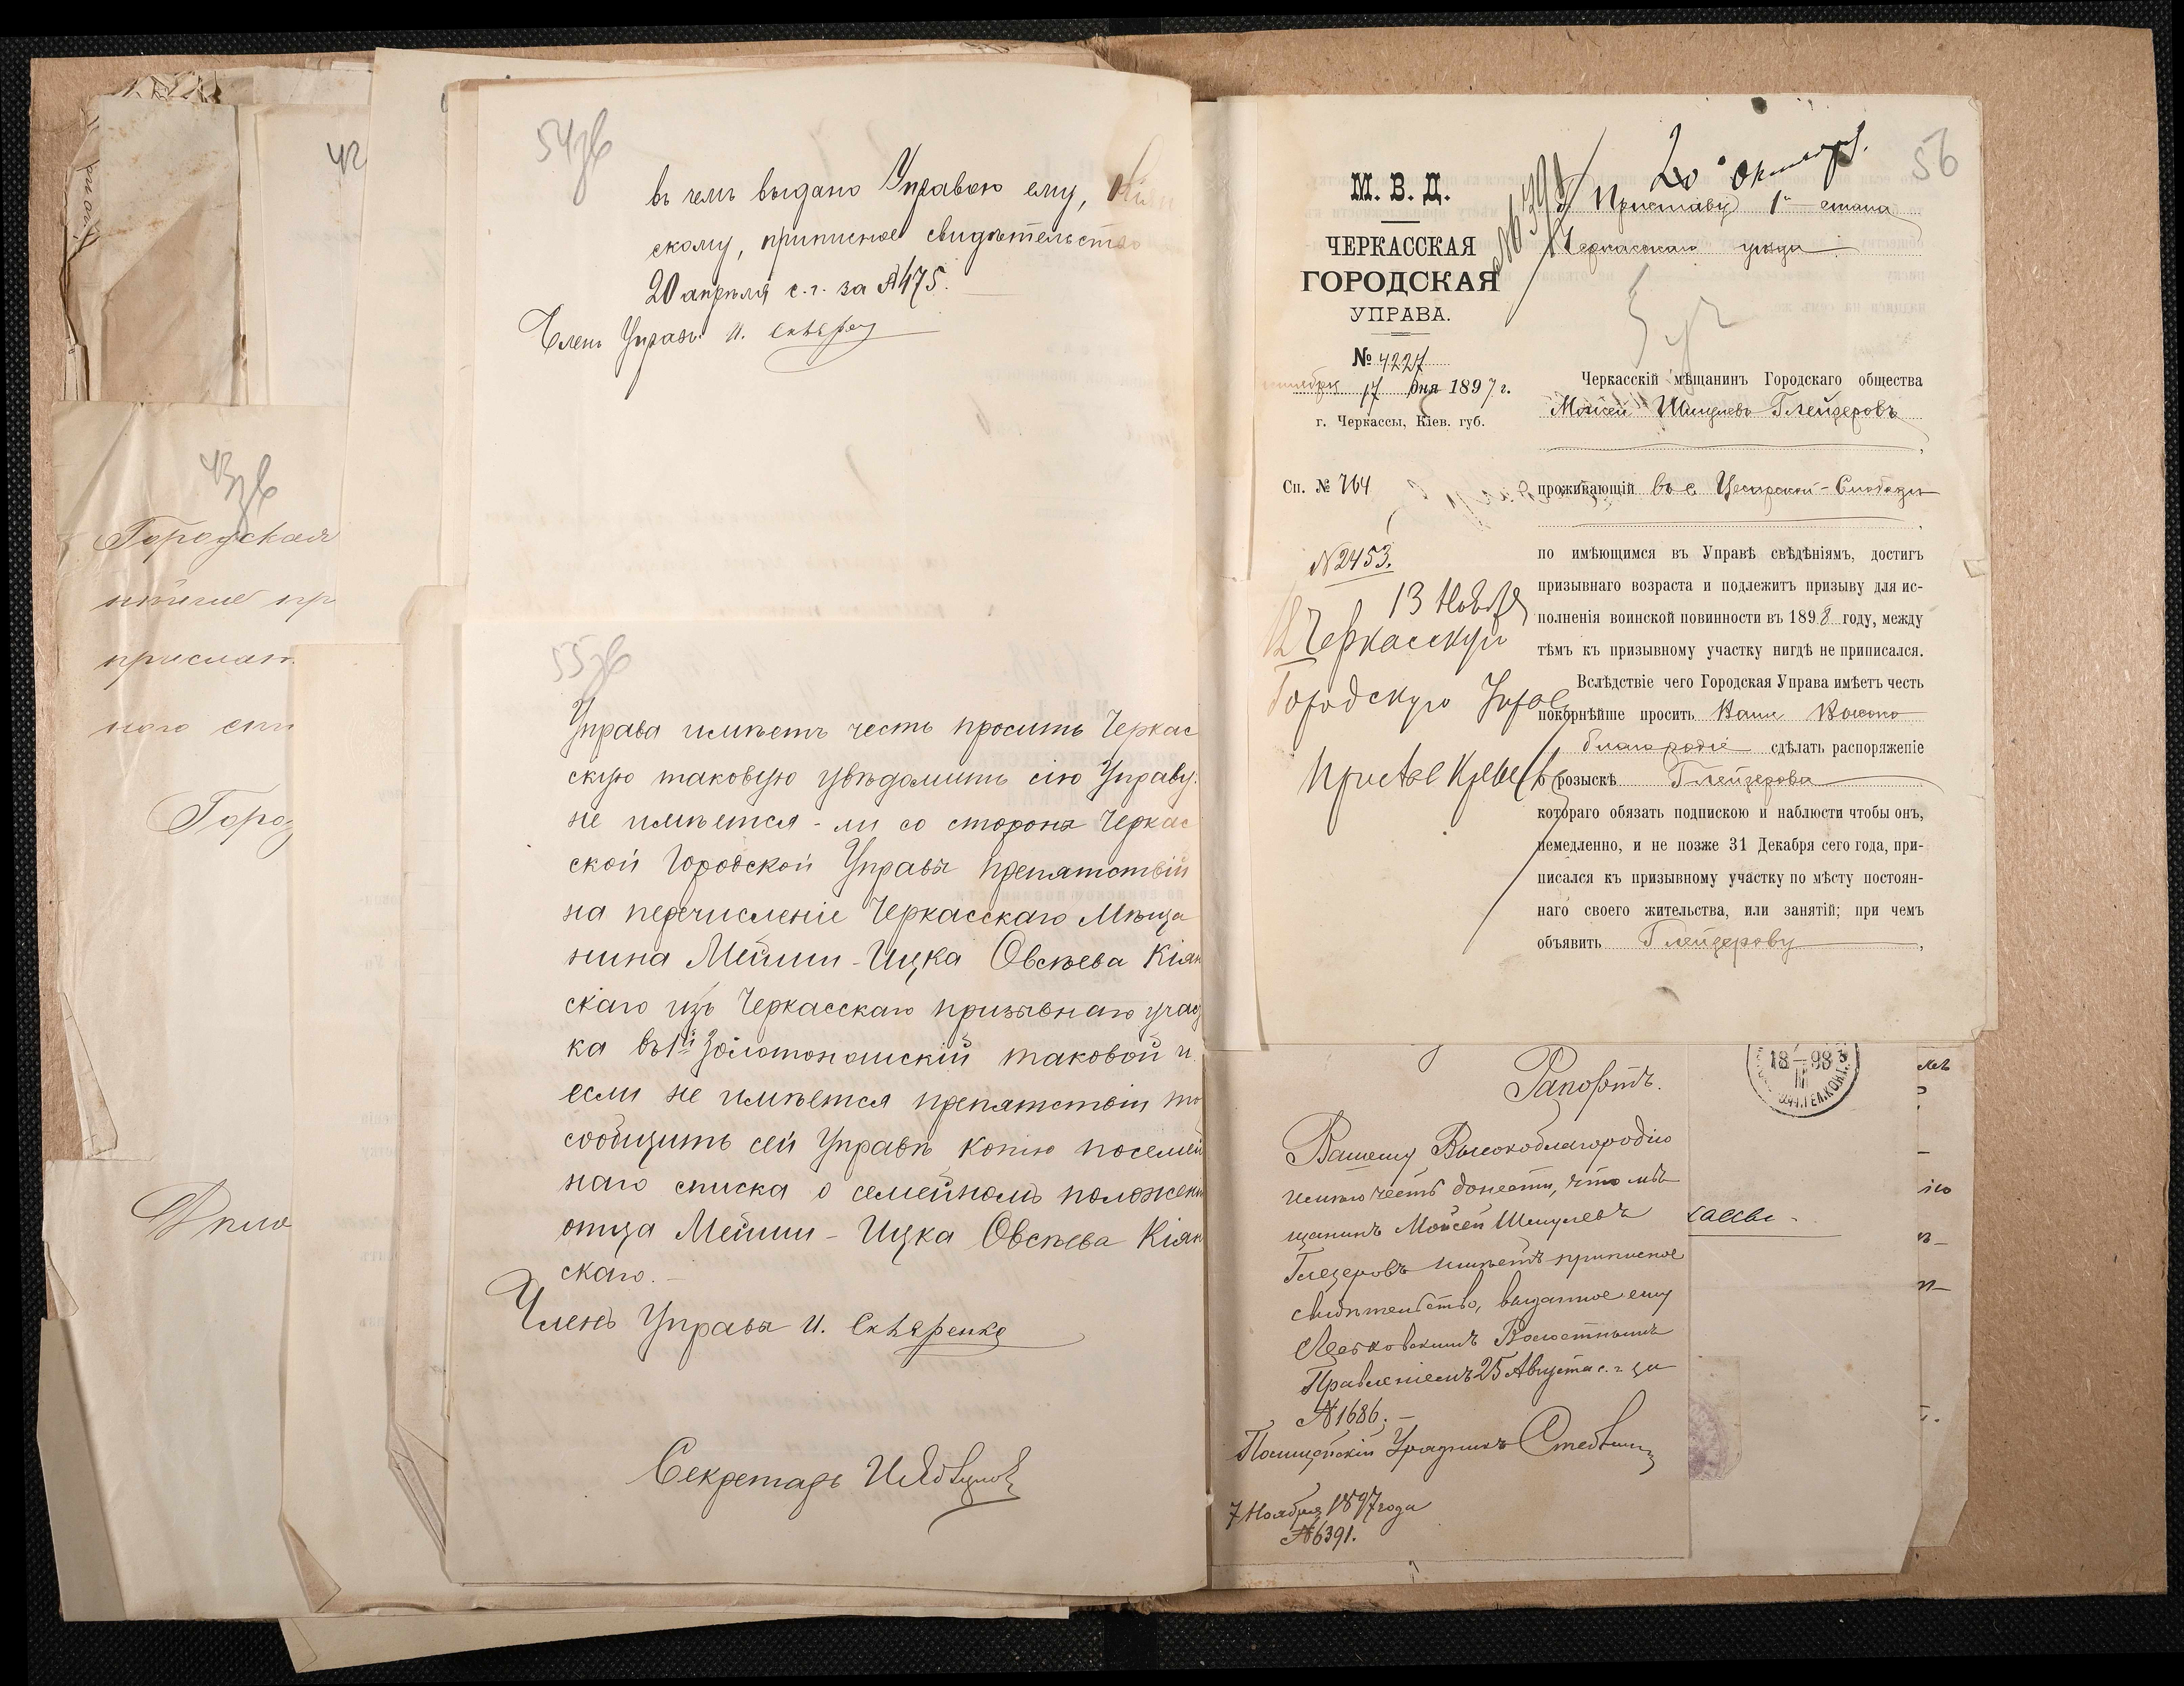 42
43зв
Городская
прислат
Горо
54зв
въ чемъ выдано Управою ему, Кіян
скому, приписное свидѣтельство
20 апрѣля с. г. за №475.
Членъ Управы И.
55зв
Управа имѣетъ честь просить Черкас
скую таковую увѣдомить сію Управу:
не имѣется-ли со стороны Черкас
ской Городской Управы препятствій
на перечисленіе Черкасскаго Мѣща
нина Мейши-Ицка Овсѣева Кіян
скаго изъ Черкасскаго призывнаго учас
ка въ 1й Золотоношскій таковой и
если не имѣется препятствій то
сообщить сей Управѣ копію посемей
наго списка о семейномъ положеніи
отца Мейши-Ицка Овсѣева Кіян
скаго.
Членъ Управы И. Скляренко
Секретарь
56
20 октября
М. В. Д.
ЧЕРКАССКАЯ
ГОРОДСКАЯ
УПРАВА.
№ 4227
17 дня 1897 г.
г. Черкассы, Кіев. губ.
Сп. № 764
Приставу 1го стана
Черкасскаго уѣзда
Черкасскій мѣщанинъ Городскаго общества
Мойсей Шмулевъ Глейзеровъ
,
проживающій въ с. Цесарской-Слободѣ
,
по имѣющимся въ Управѣ свѣдѣніямъ, достигъ
призывнаго возраста и подлежитъ призыву для ис-
полненія воинской повинности въ 1898 году, между
тѣмъ къ призывному участку нигдѣ не приписался.
Вслѣдствіе чего Городская Управа имѣетъ честь
покорнѣйше просить Ваше Высоко
благородіе сдѣлать распоряженіе
о розыскѣ Глейзерова
котораго обязать подпискою и наблюсти чтобы онъ,
немедленно, и не позже 31 Декабря сего года, при-
писался къ призывному участку по мѣсту постоян-
наго своего жительства, или занятій; при чемъ
объявить Глейзерову ,
№ 2453.
13 Ноября
Въ Черкасскую
Городскую Управу
Рапортъ.
Вашему Высокоблагородію
имѣю честь донести, что мѣ
щанинъ Мойсей Шмулевъ
Глезеровъ имѣетъ приписное
свидѣтельство, выданное ему
Волостнымъ
Правленіемъ 25 Августа с. г. за
№1686.
Полицейскій Урядникъ
7 Ноября 1897 года
№6391.
18–98
III
кассы